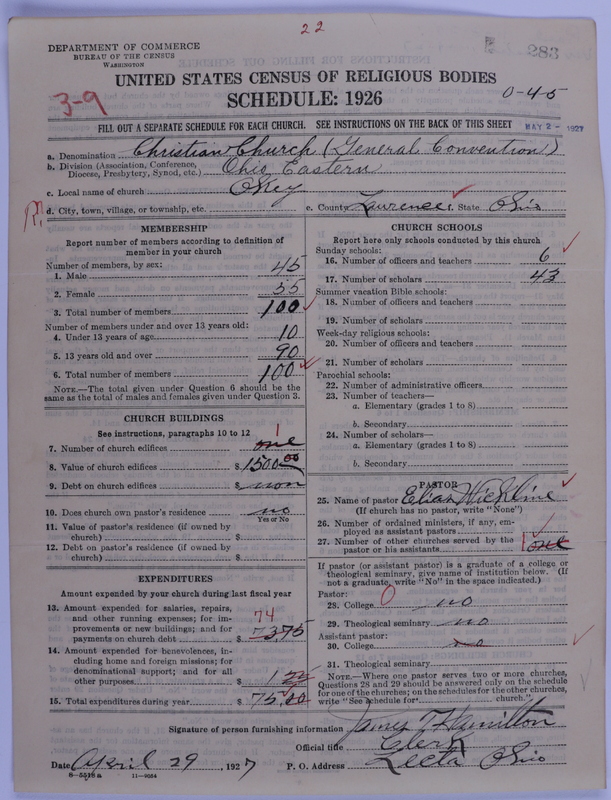 22
DEPARTMENT OF COMMERCE
BUREAU OF THE CENSUS
WASHINGTON
283
UNITED STATES CENSUS OF RELIGIOUS BODIES
SCHEDULE: 1926
3-9
0-45
FILL OUT A SEPARATE SCHEDULE FOR EACH CHURCH. SEE INSTRUCTIONS ON THE BACK OF THIS SHEET
MAY 2 - 1927
a. Denomination Christian Church (General Convention)
b. Division (Association, Conference, Diocese, Presbytery, Synod, etc.) Ohio Eastern
c. Local name of church Okey
d. City, town, village, or township, etc. e. County Lawrence f. State Ohio
R.
MEMBERSHIP
Report number of members according to definition of
member in your church
Number of members, by sex:
1. Male 45
2. Female 55
3. Total number of members 100
Number of members under and over 13 years old:
4. Under 13 years of age 10
5. 13 years old and over 90
6. Total number of members 100
NOTE.—The total given under Question 6 should be the
same as the total of males and females given under Question 3.
CHURCH BUILDINGS
See instructions, paragraphs 10 to 12
1
7. Number of church edifices one
8. Value of church edifices $1500.00
9. Debt on church edifices $ non
10. Does church own pastor's residence no
Yes or No
11. Value of pastor's residence (if owned by
church) $
12. Debt on pastor's residence (if owned by
church) $
EXPENDITURES
Amount expended by your church during last fiscal year
13. Amount expended for salaries, repairs,
and other running expenses; for im-
provements or new buildings; and for
payments on church debt $ 73.75
74
14. Amount expended for benevolences, in-
cluding home and foreign missions; for
denominational support; and for all
other purposes $ 1.25
15. Total expenditures during year $ 75.00
CHURCH SCHOOLS
Report here only schools conducted by this church
Sunday schools:
16. Number of officers and teachers 6
17. Number of scholars 43
Summer vacation Bible schools:
18. Number of officers and teachers
19. Number of scholars
Week-day religious schools:
20. Number of officers and teachers
21. Number of scholars
Parochial schools:
22. Number of administrative officers
23. Number of teachers—
a. Elementary (grades 1 to 8)
b. Secondary
24. Number of scholars—
a. Elementary (grades 1 to 8)
b. Secondary
PASTOR
25. Name of pastor Elias Wickline
(If church has no pastor, write "None")
26. Number of ordained ministers, if any, em-
ployed as assistant pastors
27. Number of other churches served by the
pastor or his assistants 1 one
If pastor (or assistant pastor) is a graduate of a college or
theological seminary, give name of institution below. (If
not a graduate, write "No" in the space indicated.)
Pastor:
28. College 0 no
29. Theological seminary no
Assistant pastor:
30. College no
31. Theological seminary
NOTE.—Where one pastor serves two or more churches,
Questions 28 and 29 should be answered only on the schedule
for one of the churches; on the schedules for the other churches,
write "See schedule for church."
Signature of person furnishing information James T Hamilton
Official title Clerk
Date April 29, 1927 P. O. Address Lecta Ohio
8-5518a 11-9264